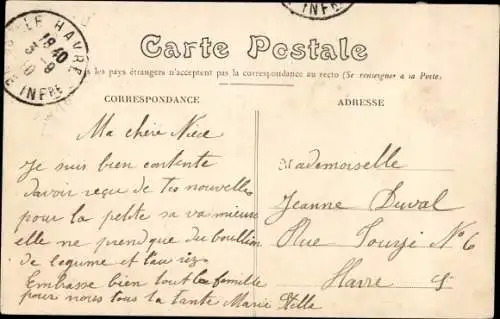 LE HAVRE
18 40
INFRE
Carte Postale
les pays étrangers n'acceptent pas la correspondance au recto (Se renseigner a la Poste.
CORRESPONDANCE
ADRESSE
Ma chère Nièce
Je suis bien contente
davoir reçu de tes nouvelles
pour la petite sa va mieux
elle ne prend que du bouillon
de legume et lau
Embrasse bien tout la famille
pour nous tous la tante Marie Stelle
Mademoiselle
Jeanne Duval
Rue No 6
Havre